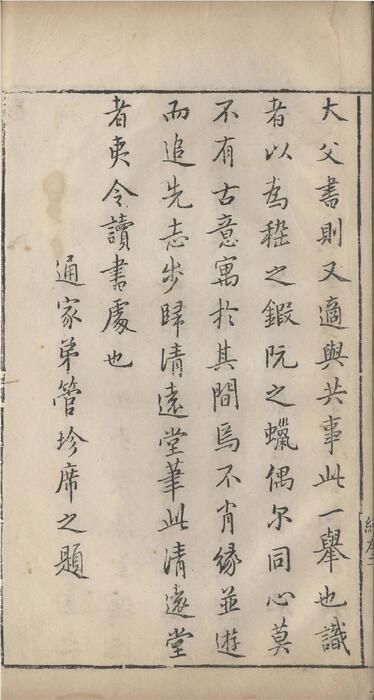 大父書則又適與共事此一舉也識
者以為嵇之鍛阮之蠟偶尔同心莫
不有古意寓扵其間焉不肖緣並遊
而追先志步歸清遠堂筆此清遠堂
者夷令讀書處也
通家弟管珍席之題